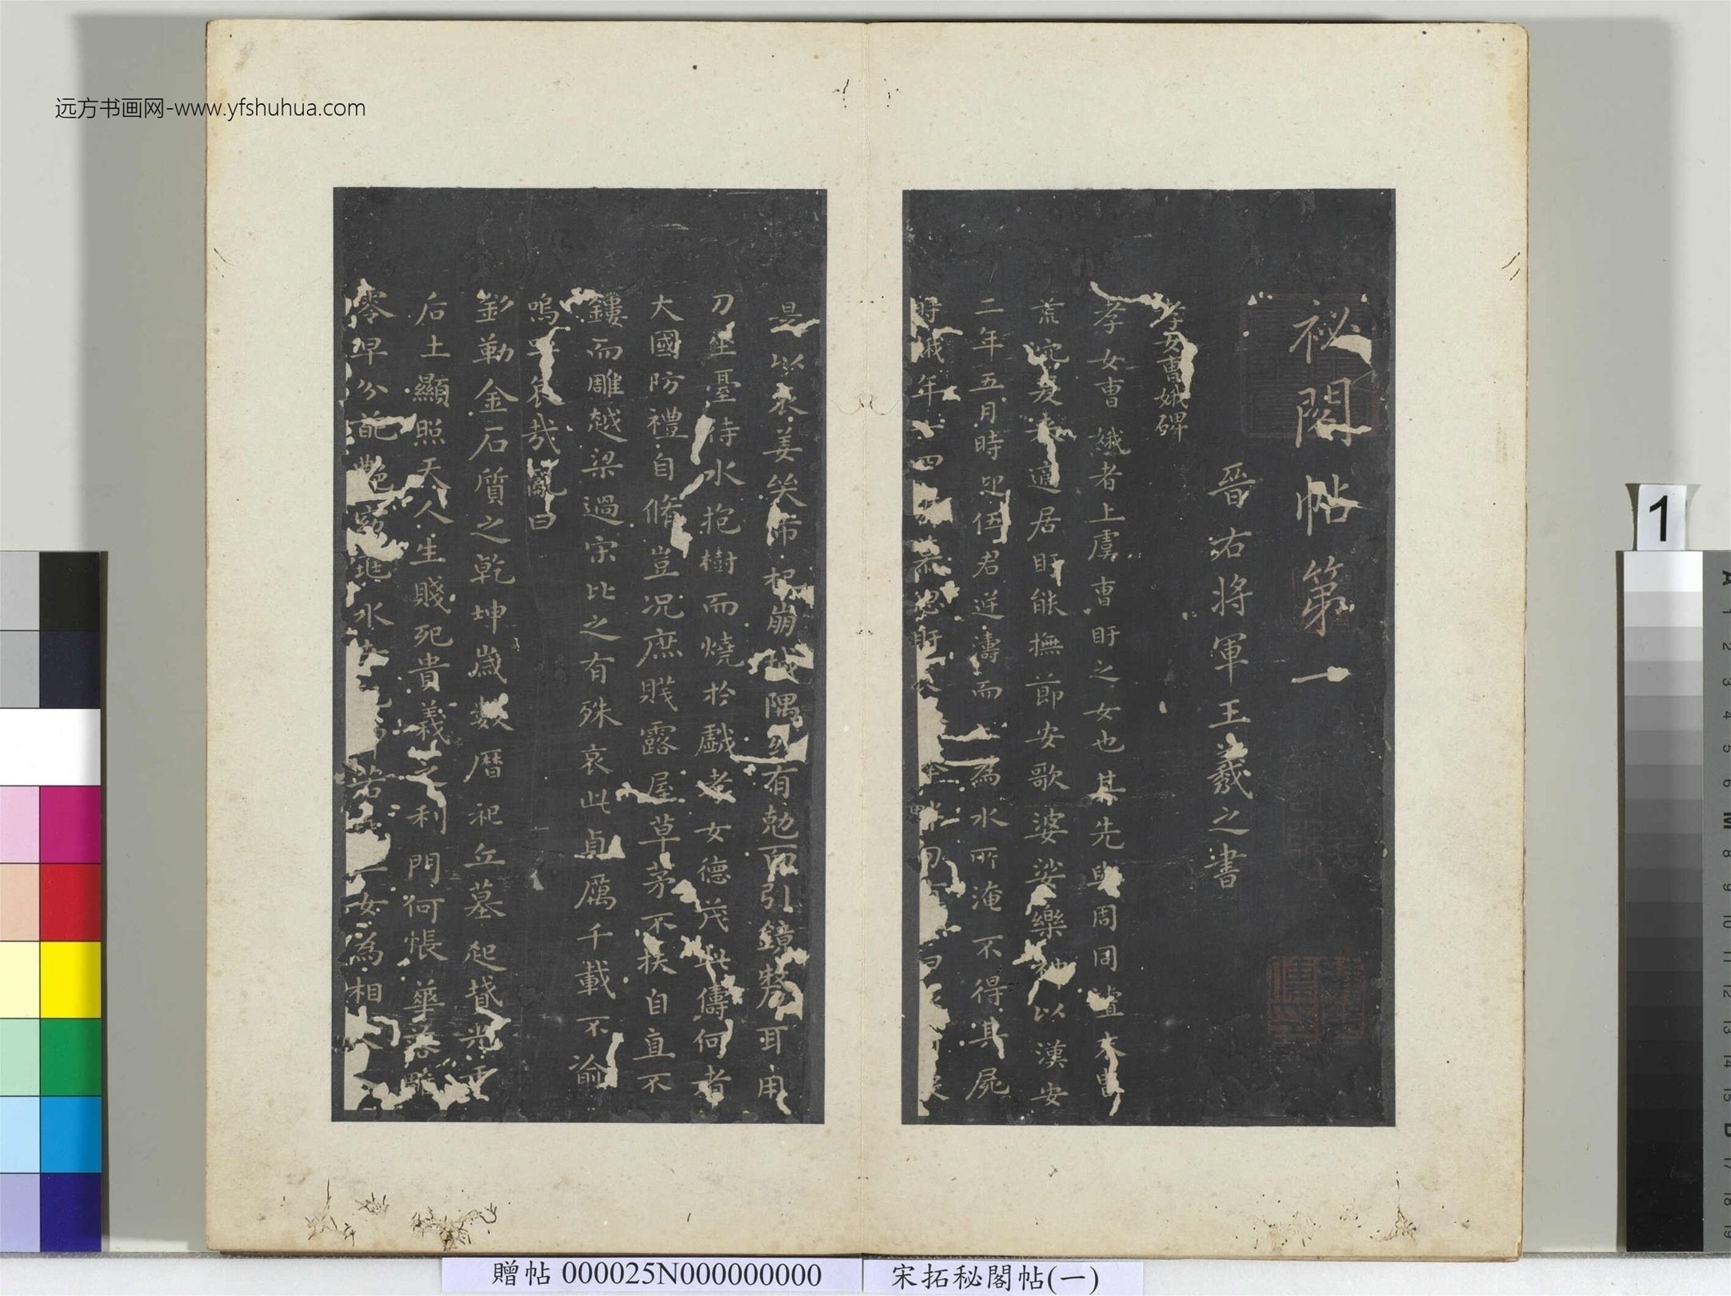 远方书画网-www.yfshuhua.com
祕閣帖第一
晉右將軍王羲之書
孝女曹娥碑
孝女曹娥者上虞曹盱之女也其先與周同祖末冑
荒沉爰来適居盱能撫節安歌婆娑樂神以漢安
二年五月時迎伍君逆濤而上為水所淹不得其屍
時娥年十四號慕思盱
是以哀姜哭市杞崩城隅或有尅面引鏡剺耳用
刀坐臺待水抱樹而燒於戲孝女德茂此儔何者
大國防禮自脩豈況庶賤露屋草茅不扶自直不
鏤而雕越梁過宋比之有殊哀此貞厲千載不渝
嗚呼哀哉亂曰
銘勒金石質之乾坤歲數曆祀丘墓起墳光于
后土顯照天人生賤死貴義之利門何悵華落雕
零早分葩艷窈窕永世配神若二女為相夫人
1
贈帖 000025N000000000
宋拓秘閣帖(一)